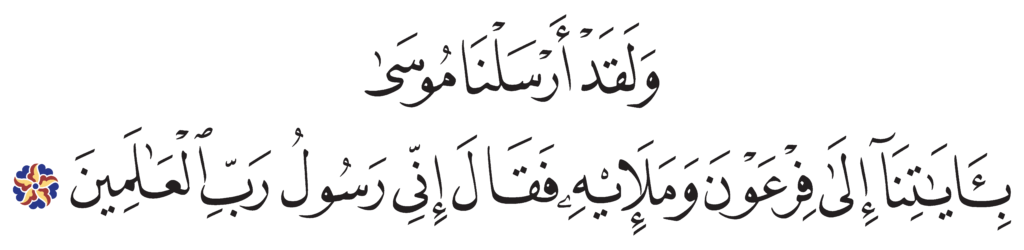 وَلَقَدْ أَرْسَلْنَا مُوسَىٰ
بِـَٔايَـٰتِنَآ إِلَىٰ فِرْعَوْنَ وَمَلَإِي۟هِۦ فَقَالَ إِنِّى رَسُولُ رَبِّ ٱلْعَـٰلَمِينَ